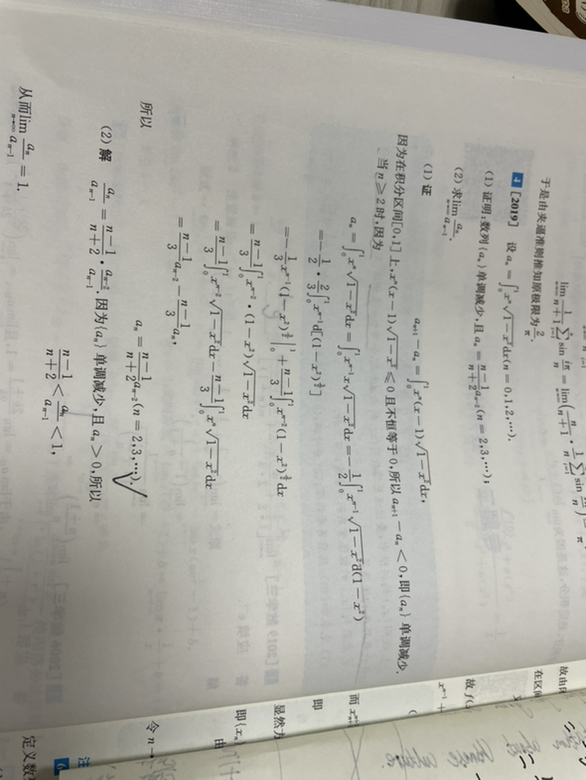 lim 1/(n+1) ∑ sin iπ/n = lim(n/(n+1) · 1/n ∑ sin
于是由夹逼准则推知原极限为 2/π
4 [2019] 设 aₙ = ∫₀¹ xⁿ√(1−x²)dx(n=0,1,2,…).
(1) 证明:数列{aₙ}单调减少,且 aₙ = (n−1)/(n+2) aₙ₋₂(n=2,3,…);
(2) 求 lim_{n→∞} aₙ/aₙ₋₁.
(1) 证 aₙ₊₁ − aₙ = ∫₀¹ xⁿ(x−1)√(1−x²)dx,
因为在积分区间[0,1]上,xⁿ(x−1)√(1−x²) ≤ 0 且不恒等于0,所以 aₙ₊₁ − aₙ < 0,即{aₙ}单调减少.
当 n ≥ 2 时,因为
aₙ = ∫₀¹ xⁿ√(1−x²)dx = ∫₀¹ xⁿ⁻¹x√(1−x²)dx = −1/2 ∫₀¹ xⁿ⁻¹√(1−x²)d(1−x²)
= −1/2 · 2/3 ∫₀¹ xⁿ⁻¹d[(1−x²)^{3/2}]
= −1/3 xⁿ⁻¹(1−x²)^{3/2}|₀¹ + (n−1)/3 ∫₀¹ xⁿ⁻²(1−x²)^{3/2}dx
= (n−1)/3 ∫₀¹ xⁿ⁻² · (1−x²)√(1−x²)dx
= (n−1)/3 ∫₀¹ xⁿ⁻²√(1−x²)dx − (n−1)/3 ∫₀¹ xⁿ√(1−x²)dx
= (n−1)/3 aₙ₋₂ − (n−1)/3 aₙ,
所以 aₙ = (n−1)/(n+2) aₙ₋₂(n=2,3,…).
(2) 解 aₙ/aₙ₋₁ = (n−1)/(n+2) · aₙ₋₂/aₙ₋₁. 因为{aₙ}单调减少,且 aₙ > 0,所以
(n−1)/(n+2) < aₙ/aₙ₋₁ < 1,
从而 lim_{n→∞} aₙ/aₙ₋₁ = 1.
在区间
故 f(
而
即
显然
即{xₙ}
由
令 n→
注
定义数